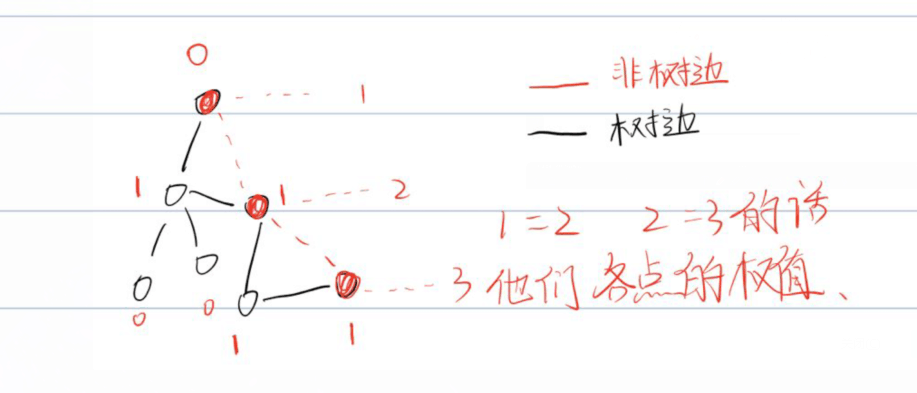 0
1
非树边
树边
1
1
2
1=2 2=3的话
3 他们 各点的权值、
0
0
1
1